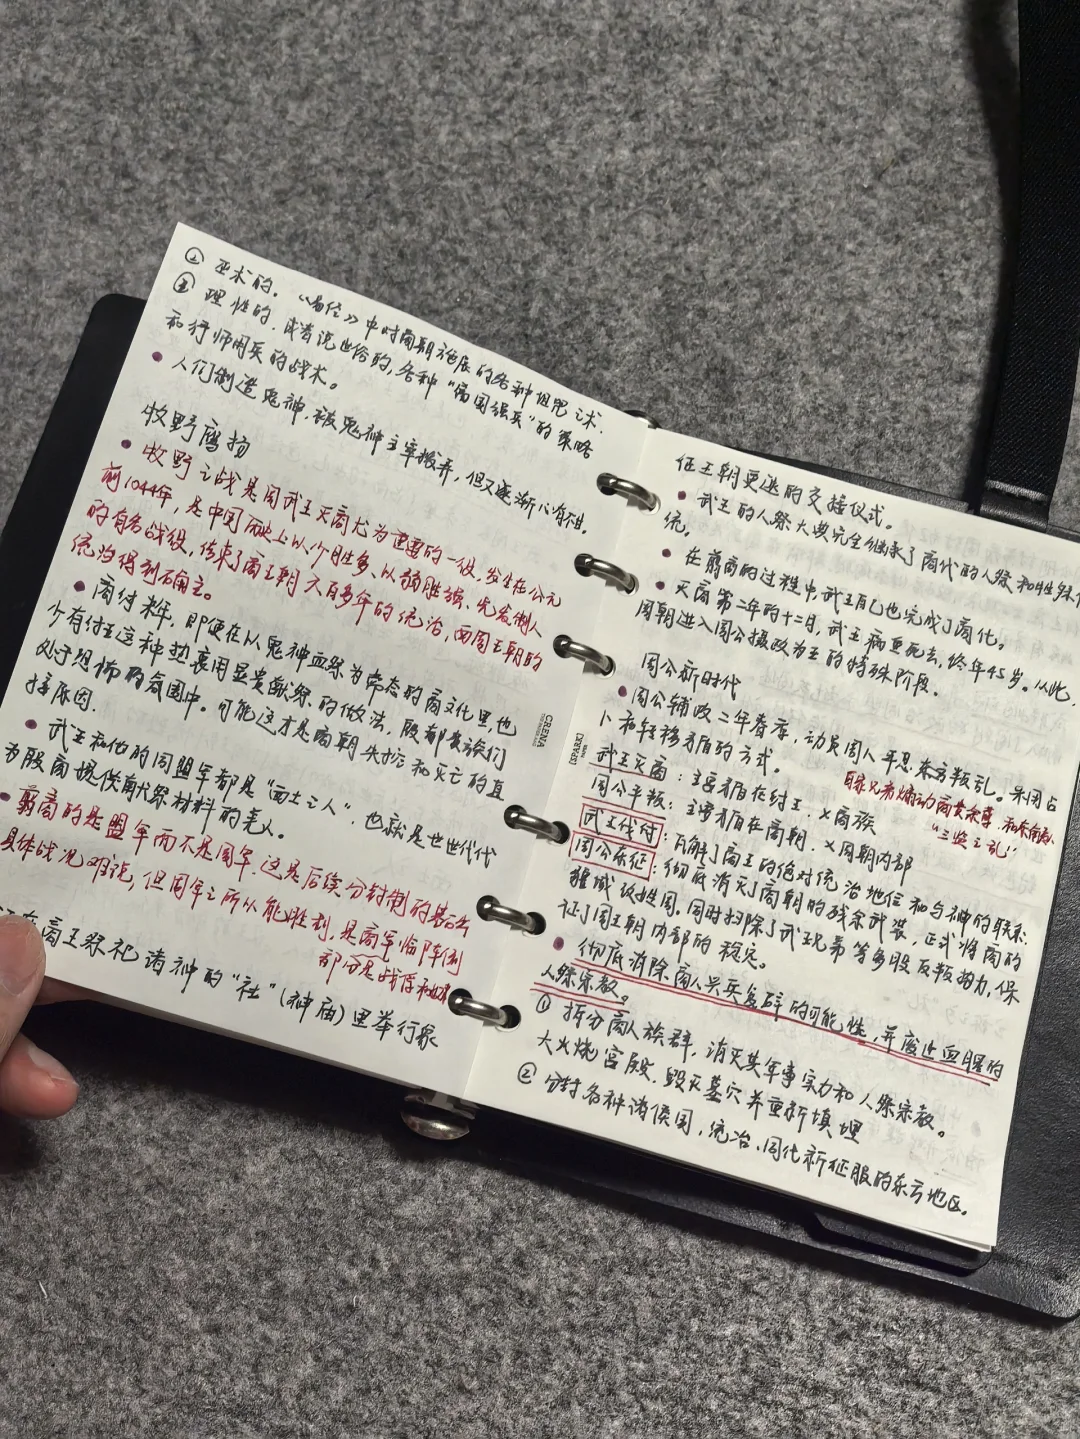 ② 巫术的.《易经》中对商朝施展的各种诅咒之术.
③ 理性的.或者说世俗的,各种“富国强兵”的策略
和行师用兵的战术。
人们制造鬼神,被鬼神主宰搬弄,但又逐渐
牧野鹰扬
牧野之战是周武王灭商尤为重要的一役.发生在公元
前1044年,是中国历史上以少胜多、以弱胜强、先发制人
的有名战役,结束了商王朝六百多年的统治,西周王朝的
统治得到确立。
商纣末年,即便在以鬼神血祭为常态的商文化里,也
少有纣王这种热衷用显贵献祭的做法,殷都贵族们
处于恐怖的氛围中。可能这才是商朝失控和灭亡的直
接原因.
武王和他的同盟军都是“西土之人”.也就是世世代代
为殷商提供献祭材料的羌人。
翦商的是盟军而不是周军.这是后续分封制的基础
具体战况难说,但周军之所以能胜利,是商军临阵倒
部分是战俘和奴隶
在商王祭祀诸神的“社”(神庙)里举行象
征王朝更迭的交接仪式。
武王的人祭大典完全继承了商代的人祭和牲祭传
统.
在翦商的过程中,武王自己也完成了商化。
灭商第二年的十二月,武王病重死去,终年45岁。从此,
周朝进入周公摄政为王的特殊阶段.
周公新时代
周公辅政二年春季,动员周人平息东方叛乱。采用占
卜和转移矛盾的方式.
武王灭商:主要矛盾在纣王.×商族
联兄弟煽动商贵族
周公平叛:主要矛盾在商朝.×周朝内部
“三监之乱”
武王伐纣:瓦解了商王的绝对统治地位和与神的联系.
周公东征:彻底消灭了商朝的残余武装,正式将商的
疆域改姓周.同时扫除了武王兄弟等多股反叛势力,保
证了周王朝内部的稳定。
彻底消除商人兴兵复辟的可能性,并废止血腥的
人祭宗教。
① 拆分商人族群,消灭其军事实力和人祭宗教。
大火烧宫殿.毁灭墓穴并重新填埋
② 分封各种诸侯国,统治、同化新征服的东方地区。
CRENA